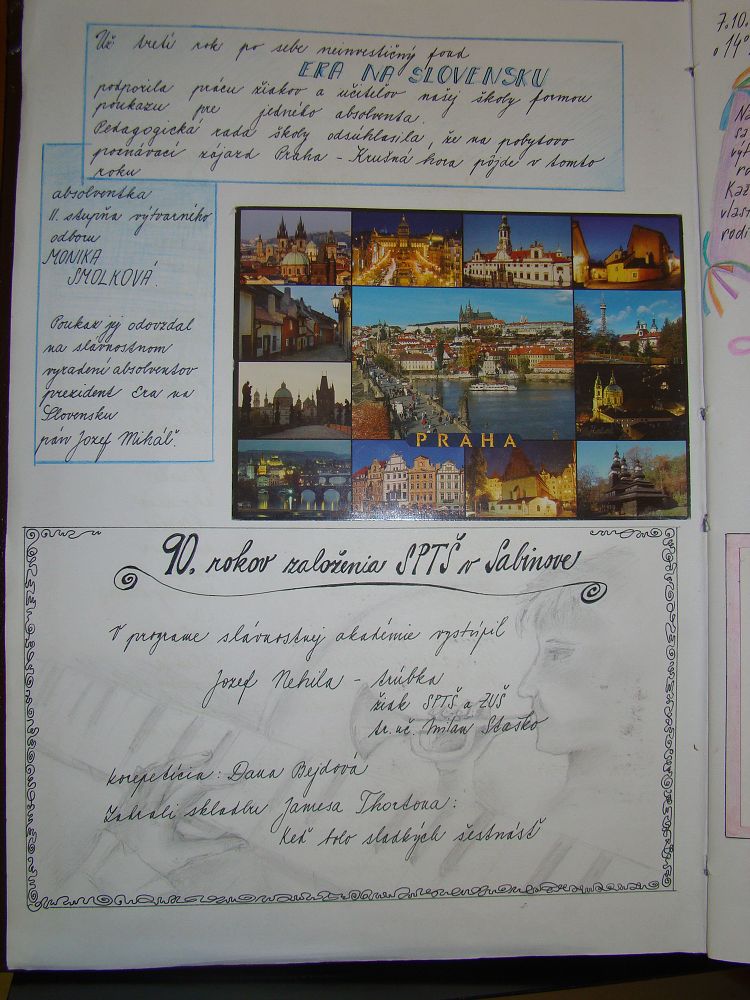 Už tretí rok po sebe neinvestičný fond
ERA NA SLOVENSKU
podporila prácu žiakov a učiteľov našej školy formou
poukazu pre jedného absolventa.
Pedagogická rada školy odsúhlasila, že na pobytovo
poznávací zájazd Praha - Krušná hora pôjde v tomto
roku
absolventka
II. stupňa výtvarného
odboru
MONIKA
SMOLKOVÁ.
Poukaz jej odovzdal
na slávnostnom
vyradení absolventov
prezident Era na
Slovensku
pán Jozef Mihálč.
PRAHA
90. rokov založenia SPTŠ v Sabinove
V programe slávnostnej akadémie vystúpil
Jozef Nehila - trúbka
žiak SPTŠ a ZUŠ
tr. uč. Milan Stasko
korepetícia: Dana Bejdová
Zahrali skladbu Jamesa Thortona:
Keď bolo sladkých šestnásť
7.10.
o 14°
Na
sa
výt
Kaž
vlast
rodi